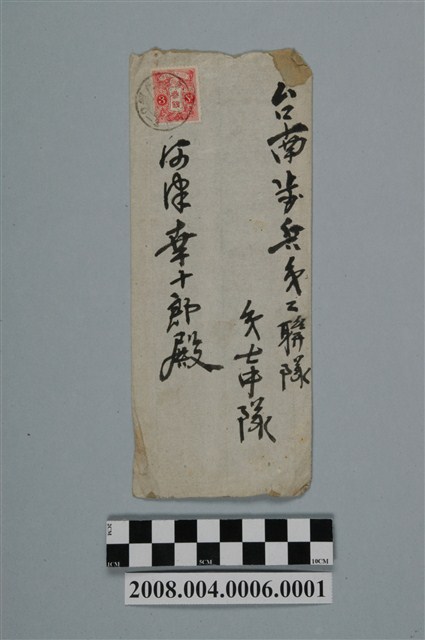 台南歩兵第二聯隊
第七中隊
河津幸十郎殿
3 3
2CM
1CM 5CM 10CM
2008.004.0006.0001